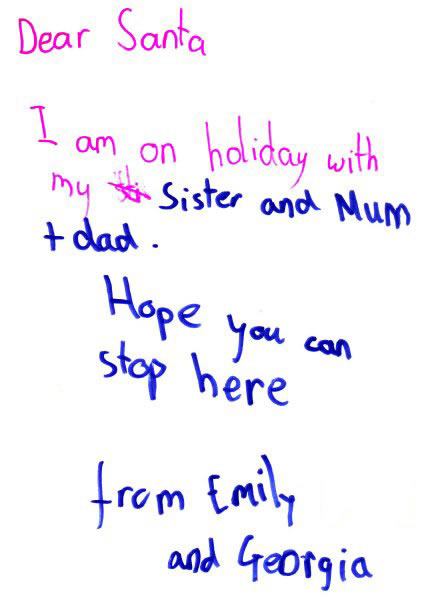 Dear Santa
I am on holiday with
my Sister and Mum
+ dad.
Hope you can
stop here
from Emily
and Georgia